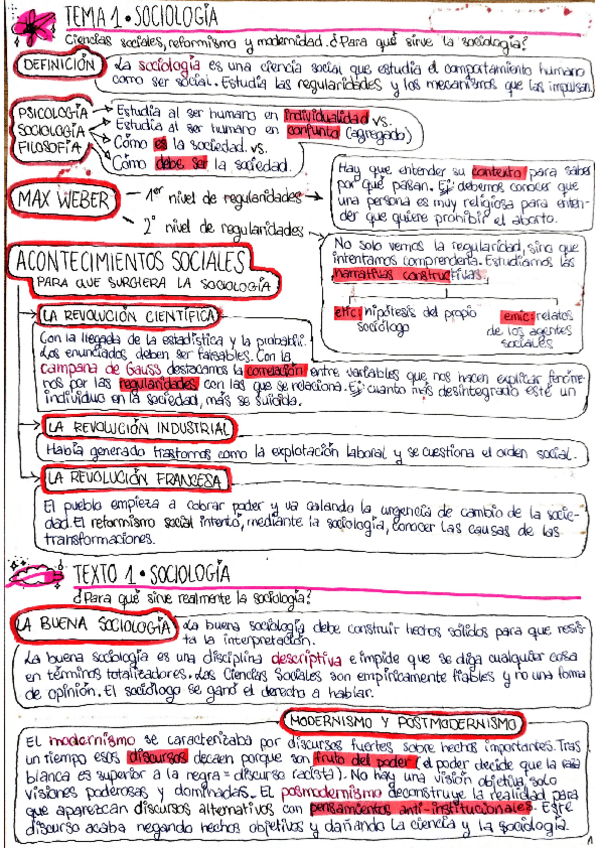 TEMA 1 • SOCIOLOGÍA
Ciencias sociales, reformismo y modernidad. ¿Para qué sirve la sociología?
DEFINICIÓN
La sociología es una ciencia social que estudia el comportamiento humano
como ser social. Estudia las regularidades y los mecanismos que las impulsan.
PSICOLOGÍA
SOCIOLOGÍA
FILOSOFÍA
Estudia al ser humano en individualidad vs.
Estudia al ser humano en conjunto (agregado)
Cómo es la sociedad vs.
Cómo debe ser la sociedad.
MAX WEBER
1er nivel de regularidades
Hay que entender su contexto para saber
por qué pasan. Ej: debemos conocer que
una persona es muy religiosa para enten-
der que quiere prohibir el aborto.
2º nivel de regularidades
No solo vemos la regularidad, sino que
intentamos comprenderla. Estudiamos las
narrativas constructivas.
etic: hipótesis del propio
sociólogo
emic: relatos
de los agentes
sociales
ACONTECIMIENTOS SOCIALES
PARA QUE SURGIERA LA SOCIOLOGÍA
LA REVOLUCIÓN CIENTÍFICA
Con la llegada de la estadística y la probabili.
Los enunciados deben ser falsables. Con la
campana de Gauss destacamos la correlación entre variables que nos hacen explicar fenóme-
nos por las regularidades con las que se relaciona. Ej: cuanto más desintegrado esté un
individuo en la sociedad, más se suicida.
LA REVOLUCIÓN INDUSTRIAL
Había generado trastornos como la explotación laboral y se cuestiona el orden social.
LA REVOLUCIÓN FRANCESA
El pueblo empieza a cobrar poder y va calando la urgencia de cambio de la socie-
dad. El reformismo social intentó, mediante la sociología, conocer las causas de las
transformaciones.
TEXTO 1 • SOCIOLOGÍA
¿Para qué sirve realmente la sociología?
LA BUENA SOCIOLOGÍA
La buena sociología debe construir hechos sólidos para que resis-
ta la interpretación.
La buena sociología es una disciplina descriptiva e impide que se diga cualquier cosa
en términos totalizadores. Las Ciencias Sociales son empíricamente fiables y no una forma
de opinión. El sociólogo se ganó el derecho a hablar.
MODERNISMO Y POSTMODERNISMO
El modernismo se caracterizaba por discursos fuertes sobre hechos importantes. Tras
un tiempo esos discursos decaen porque son fruto del poder (el poder decide que la raza
blanca es superior a la negra = discurso racista). No hay una visión objetiva, solo
visiones poderosas y dominadas. El postmodernismo deconstruye la realidad para
que aparezcan discursos alternativos con pensamientos anti-institucionales. Este
discurso acaba negando hechos objetivos y dañando la ciencia y la sociología.
1